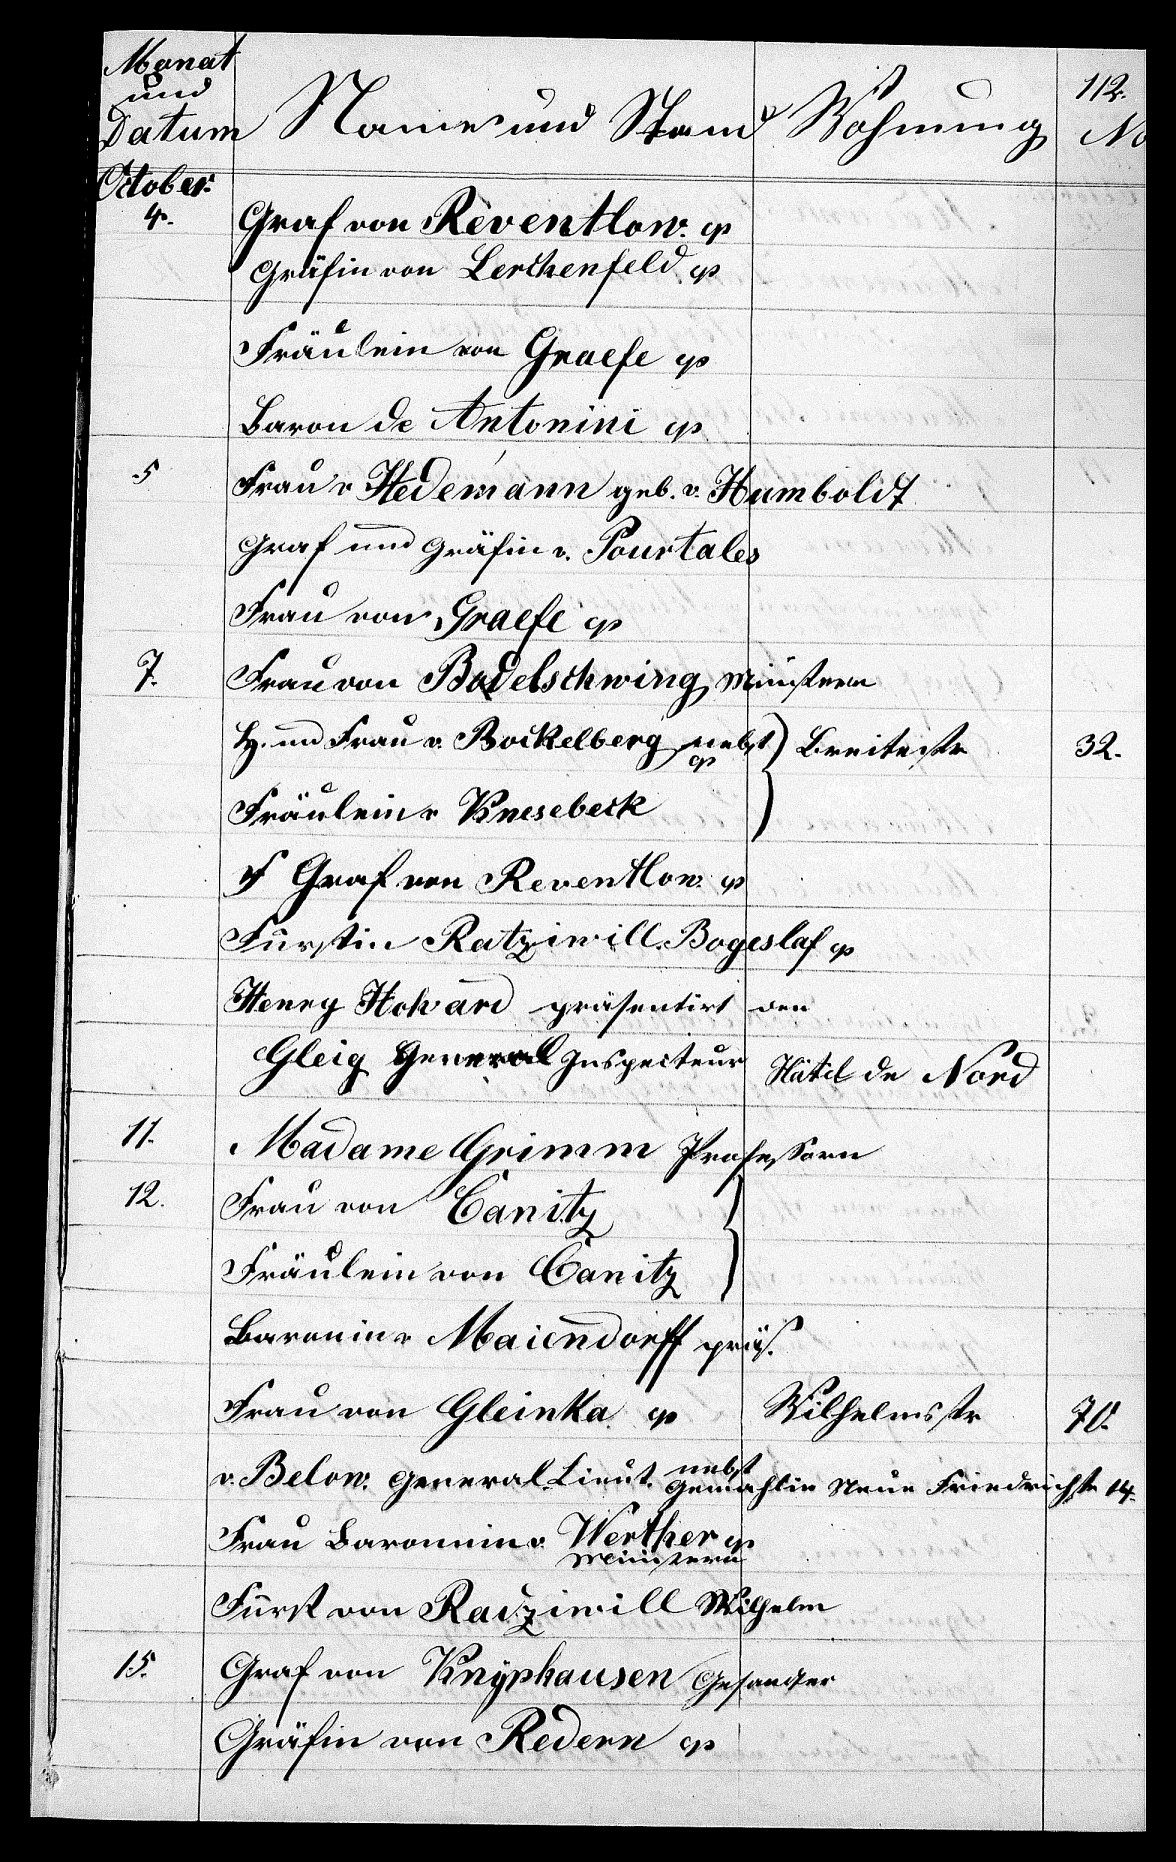 112.
Monat und Datum Name und Stand Wohnung No
October.
4. Graf von Reventlow. cp
Gräfin von Lerchenfeld. cp
Fräulein von Graefe cp
Baron de Antonini cp
5 Frau v Hedemann geb. v. Humboldt
Graf und Gräfin v. Pourtales
Frau von Graefe cp
7. Frau von Bodelschwing, Ministern
H. und Frau v. Bockelberg nebst cp Breitestr 32.
Fräulein v Knesebeck
Graf von Reventlow. cp
Fürstin Ratziwill. Bogeslaf cp
Henry Hovard präsentirt den
Gleig General Inspecteur Hôtel de Nord
11. Madame Grimm Professorn
12. Frau von Canitz
Fräulein von Canitz
Baronin v Maiendorff präs.
Frau von Gleinka. cp Wilhelmsstr 70.
v. Below. General.Lieut. nebst Gemahlin Neue Friedrichstr 14.
Frau Baronnin v. Werther cp
Ministern
Fürst von Radziwill Wilhelm
15. Graf von Knyphausen Gesandter
Gräfin von Redern cp